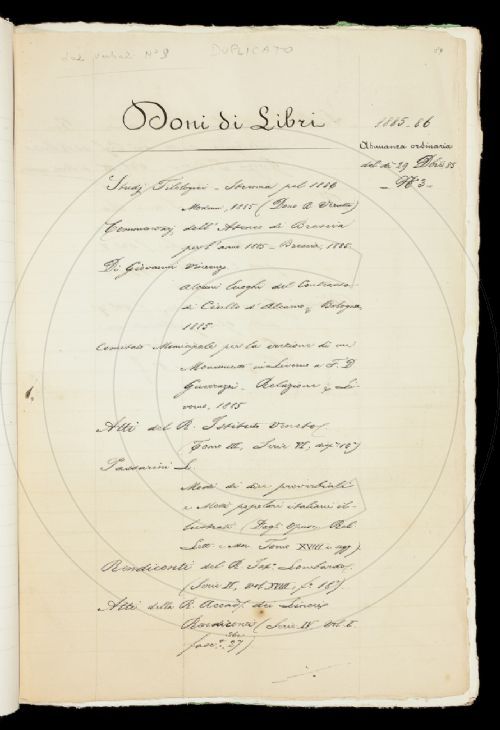 DUPLICATO
Nº 9
89
Doni di Libri
1885-86
Adunanza ordinaria
del dì 29 Dbre 85
- Nº 3 -
Studj Filologici - Strenna pel 1886
Modena, 1885 (Dono A. Veratti)
Commentarj dell'Ateneo di Brescia
per l'anno 1885 - Brescia, 1885
Di Giovanni Vincenzo
Alcuni luoghi del Contrasto
di Ciullo d'Alcamo, Bologna,
1885
Comitato Municipale per la erezione di un
Monumento in Livorno a F. D.
Guerrazzi - Relazione, Li-
vorno, 1885
Atti del R. Istituto Veneto
(Tomo III, Serie VI, disp. 10ª)
Passarini L.
Modi di dire proverbiali
e Motti popolari italiani il-
lustrati (Dagli Opusc. Rel.
Lett. e Mor. Tomo XVIII e segg.)
Rendiconti del R. Ist. Lombardo
(Serie II, Vol. XVIII, f.
Atti della R. Accad. dei Lincei
Rendiconti (Serie IV Vol. I.
fasc. 27)